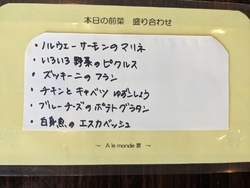 本日の前菜 盛り合わせ
・ノルウェーサーモンのマリネ
・いろいろ野菜のピクルス
・ズッキーニのフラン
・チキンとキャベツ ゆずこしょう
・ブルーチーズのポテトグラタン
・白身魚のエスカベッシュ
～ A le monde 葉 ～